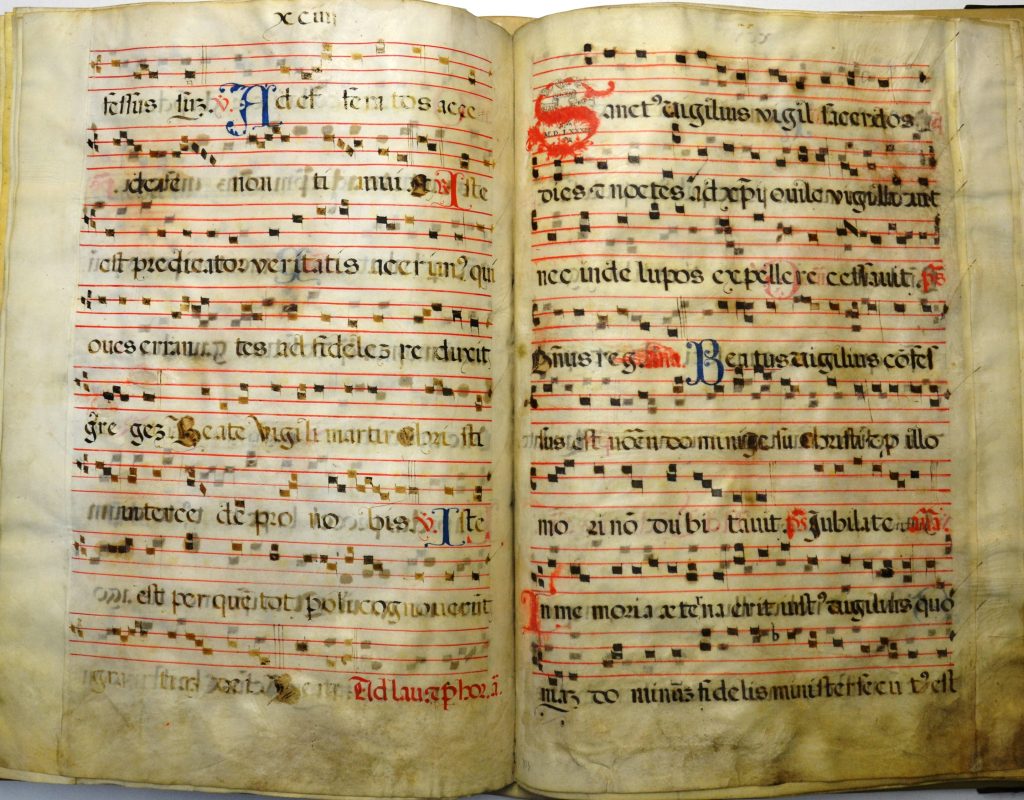 XCIIII
fessus suꝝ. V. Ad est feritatos acce
dere non timuit Iste
est predicator veritatis acerimꝰ qui
oues erran tes ad fideles reduxit
gregez. Beate Vigili martir Christi
intercede pro nobis. V. Iste
est per quē tot poli cognouerūt
Ad lau. et p hor. ā.
Sanctꝰ uigilius vigil sacerdos
dies et noctes ad xp̄i ouile vigilauit
nec inde lupos expellere cessauit p̄s
Dn̄us reg. ana. Beatus uigilius cōfes
sus est nomen domini Iesu Christi et p illo
mori nō dubi tauit p̄s Jubilate
In memoria æterna erit iustꝰ uigilius quō
iaz dominus fidelis minister secutꝰ est